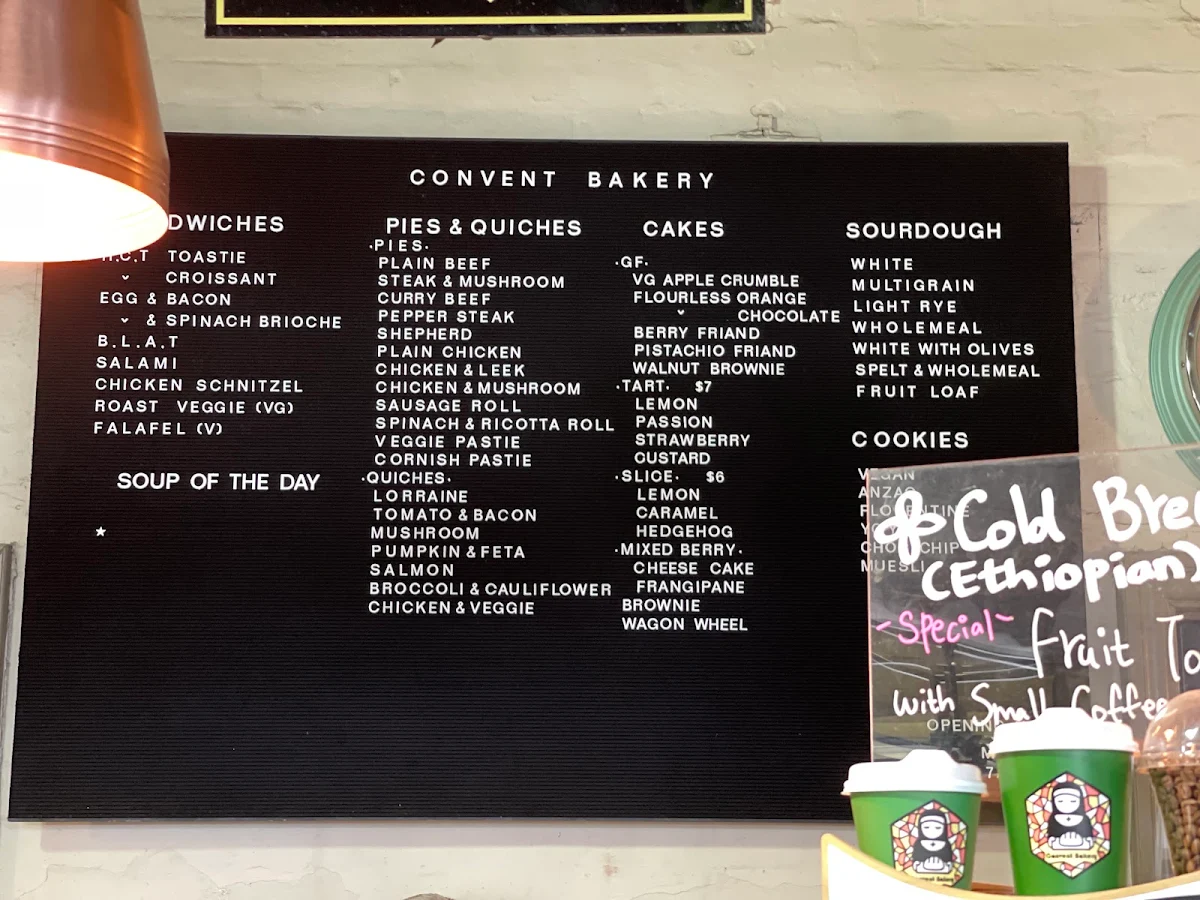 CONVENT BAKERY
DWICHES
H.C.T TOASTIE
" CROISSANT
EGG & BACON
" & SPINACH BRIOCHE
B.L.A.T
SALAMI
CHICKEN SCHNITZEL
ROAST VEGGIE (VG)
FALAFEL (V)
SOUP OF THE DAY
★
PIES & QUICHES
·PIES·
PLAIN BEEF
STEAK & MUSHROOM
CURRY BEEF
PEPPER STEAK
SHEPHERD
PLAIN CHICKEN
CHICKEN & LEEK
CHICKEN & MUSHROOM
SAUSAGE ROLL
SPINACH & RICOTTA ROLL
VEGGIE PASTIE
CORNISH PASTIE
·QUICHES·
LORRAINE
TOMATO & BACON
MUSHROOM
PUMPKIN & FETA
SALMON
BROCCOLI & CAULIFLOWER
CHICKEN & VEGGIE
CAKES
·GF·
VG APPLE CRUMBLE
FLOURLESS ORANGE
" CHOCOLATE
BERRY FRIAND
PISTACHIO FRIAND
WALNUT BROWNIE
·TART· $7
LEMON
PASSION
STRAWBERRY
CUSTARD
·SLICE· $6
LEMON
CARAMEL
HEDGEHOG
·MIXED BERRY·
CHEESE CAKE
FRANGIPANE
BROWNIE
WAGON WHEEL
SOURDOUGH
WHITE
MULTIGRAIN
LIGHT RYE
WHOLEMEAL
WHITE WITH OLIVES
SPELT & WHOLEMEAL
FRUIT LOAF
COOKIES
VEGAN
ANZAC
FLORENTINE
CHOC CHIP
MUESLI
Cold Bre
(Ethiopian)
~Special~ Fruit To
with Small Coffee
OPENIN
Convent Bakery
Convent Bakery